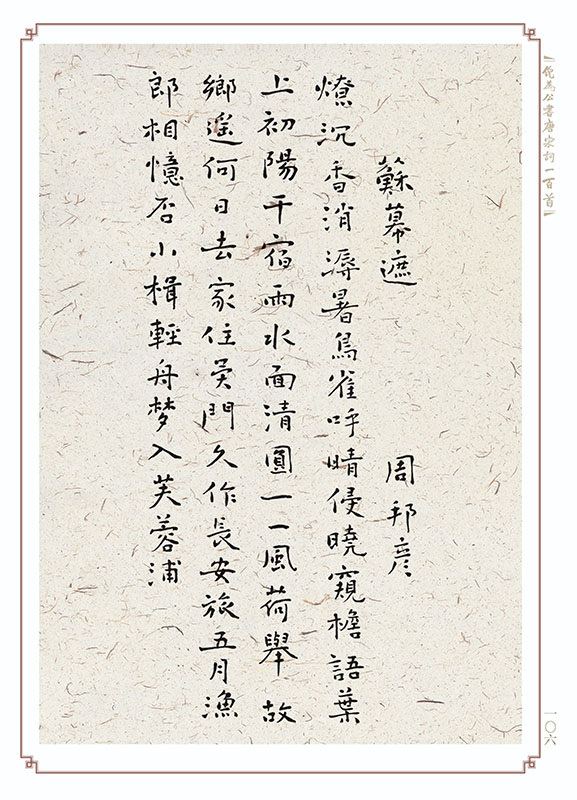 倪為公書唐宋詞一百首
蘇幕遮 周邦彦
燎沉香消溽暑鳥雀呼晴侵曉窺檐語葉
上初陽干宿雨水面清圓一一風荷舉 故
鄉遥何日去家住吴門久作長安旅五月漁
郎相憶否小楫輕舟梦入芙蓉浦
一〇六